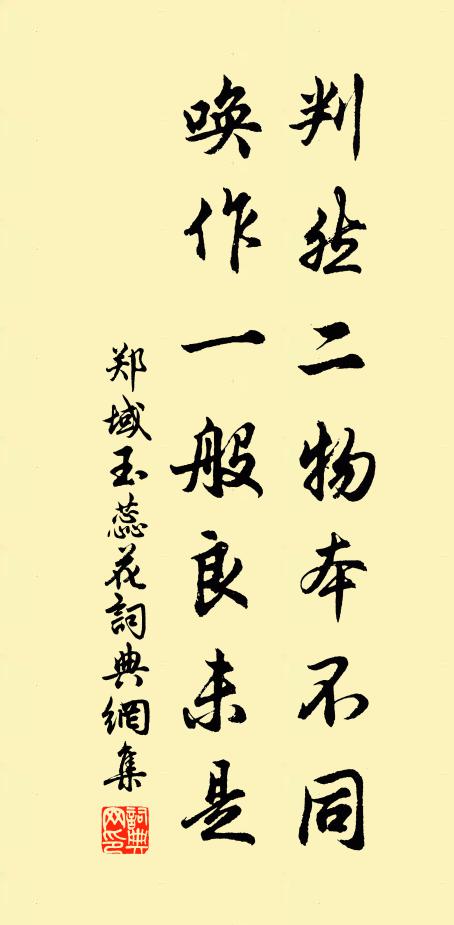 判然二物本不同
唤作一般良未是
郑域玉蕊花詞典網集
詞典网印